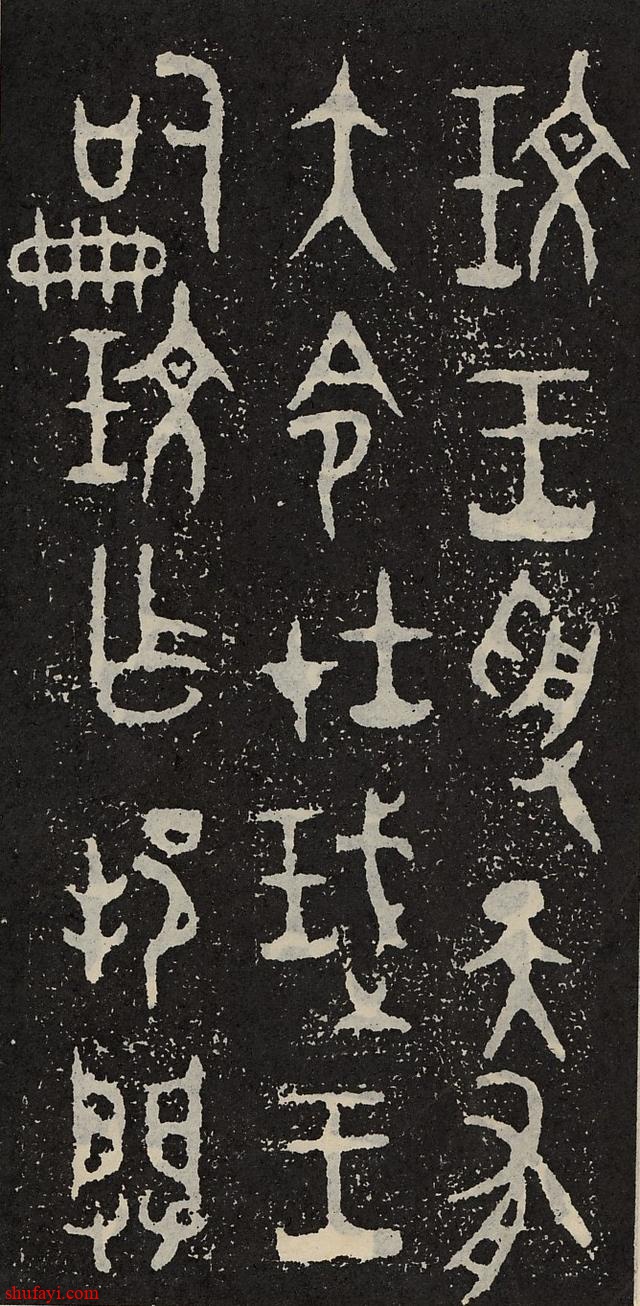 玟王受天有
大令在珷王
嗣玟乍邦闢
shufayi.com